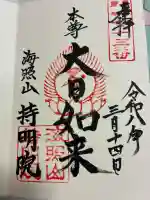 奉拝
令和八年
三月十四日
本尊
大日如来
海照山
持明院